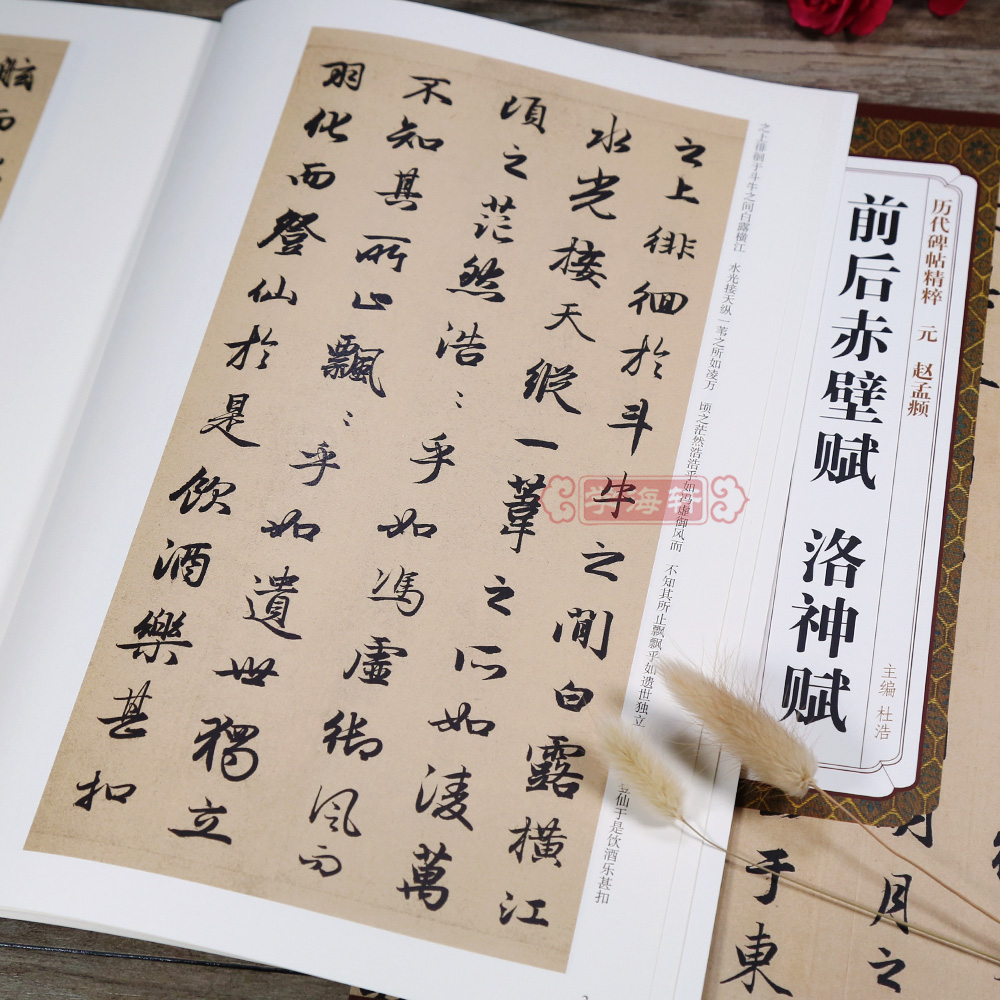 之上徘徊於斗牛之間白露橫江
水光接天縱一葦之所如凌萬
頃之茫然浩〻乎如馮虛御風而
不知其所止飄〻乎如遺世獨立
羽化而登仙於是飲酒樂甚扣
之上徘徊于斗牛之间白露横江 水光接天纵一苇之所如凌万 顷之茫然浩浩乎如冯虚御风而 不知其所止飘飘乎如遗世独立 仙于是饮酒乐甚扣
历代碑帖精粹 元 赵孟頫
前后赤壁赋 洛神赋
主编 杜浩
学海轩
舷而
月之
于東